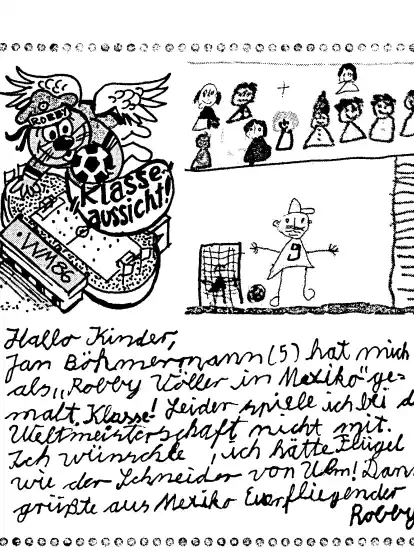 ROBBY
„Klasse
aussicht!
WM86
9
Hallo Kinder,
Jan Böhmermann (5) hat mich
als „Robby Völler in Mexiko" ge-
malt. Klasse! Leider spiele ich bei d
Weltmeisterschaft nicht mit.
Ich wünschte, ich hätte Flügel
wie der Schneider von Ulm! Dann
grüßte aus Mexiko Euer fliegender
Robby